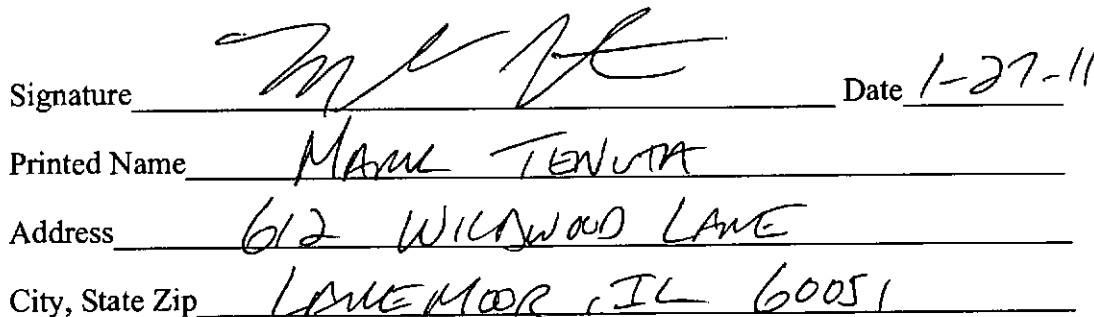 Signature Date 1-27-11
Printed Name MARK TENUTA
Address 612 WILDWOOD LANE
City, State Zip LAKEMOOR, IL 60051